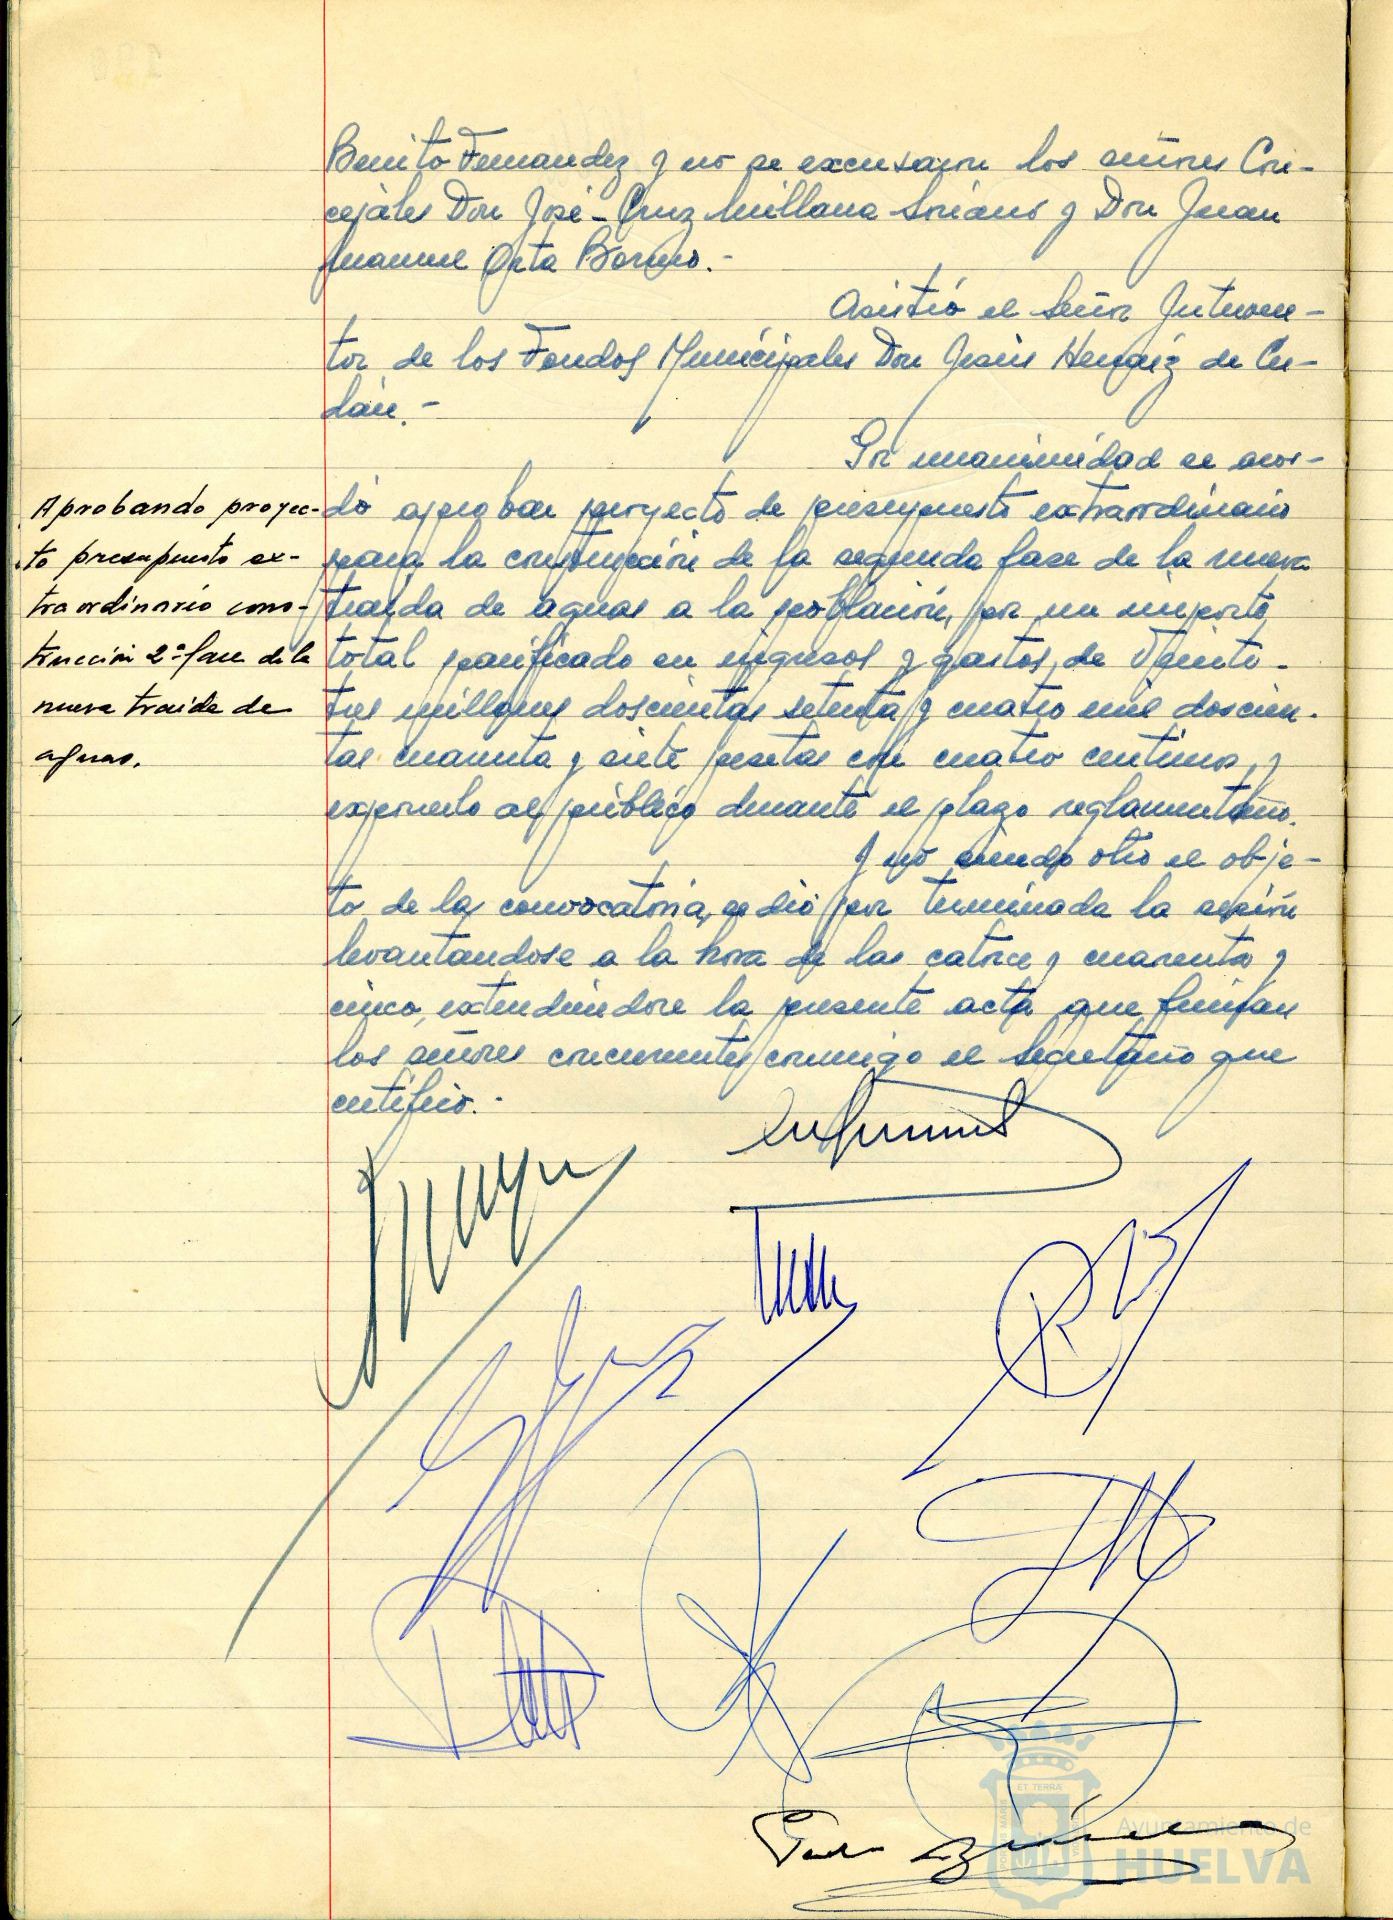 Benito Fernandez y no se excusaron los señores Con-
cejales Don José-Cruz Millana Soriano y Don Juan
Manuel Orta Borrero.-
Asistió el Señor Interven-
tor de los Fondos Municipales Don Jesús Hernáiz de
.-
Por unanimidad se acor-
dó aprobar proyecto de presupuesto extraordinario
para la construcción de la segunda fase de la nueva
traida de aguas a la población, por un importe
total panificado en ingresos y gastos, de Veinti-
tres millones doscientas setenta y cuatro mil doscien-
tas cuarenta y siete pesetas con cuatro centimos, y
exponerlo al público durante el plazo reglamentario.
Y no siendo otro el obje-
to de la convocatoria, se dió por terminada la sesión
levantandose a la hora de las catorce y cuarenta y
cinco, extendiendose la presente acta que firman
los señores concurrentes conmigo el Secretario que
certifico.-
Aprobando proyec-
to presupuesto ex-
traordinario cons-
trucción 2ª fase de la
nueva traida de
aguas.
PORTUS MARIS
ET TERRÆ
Ayuntamiento de
HUELVA